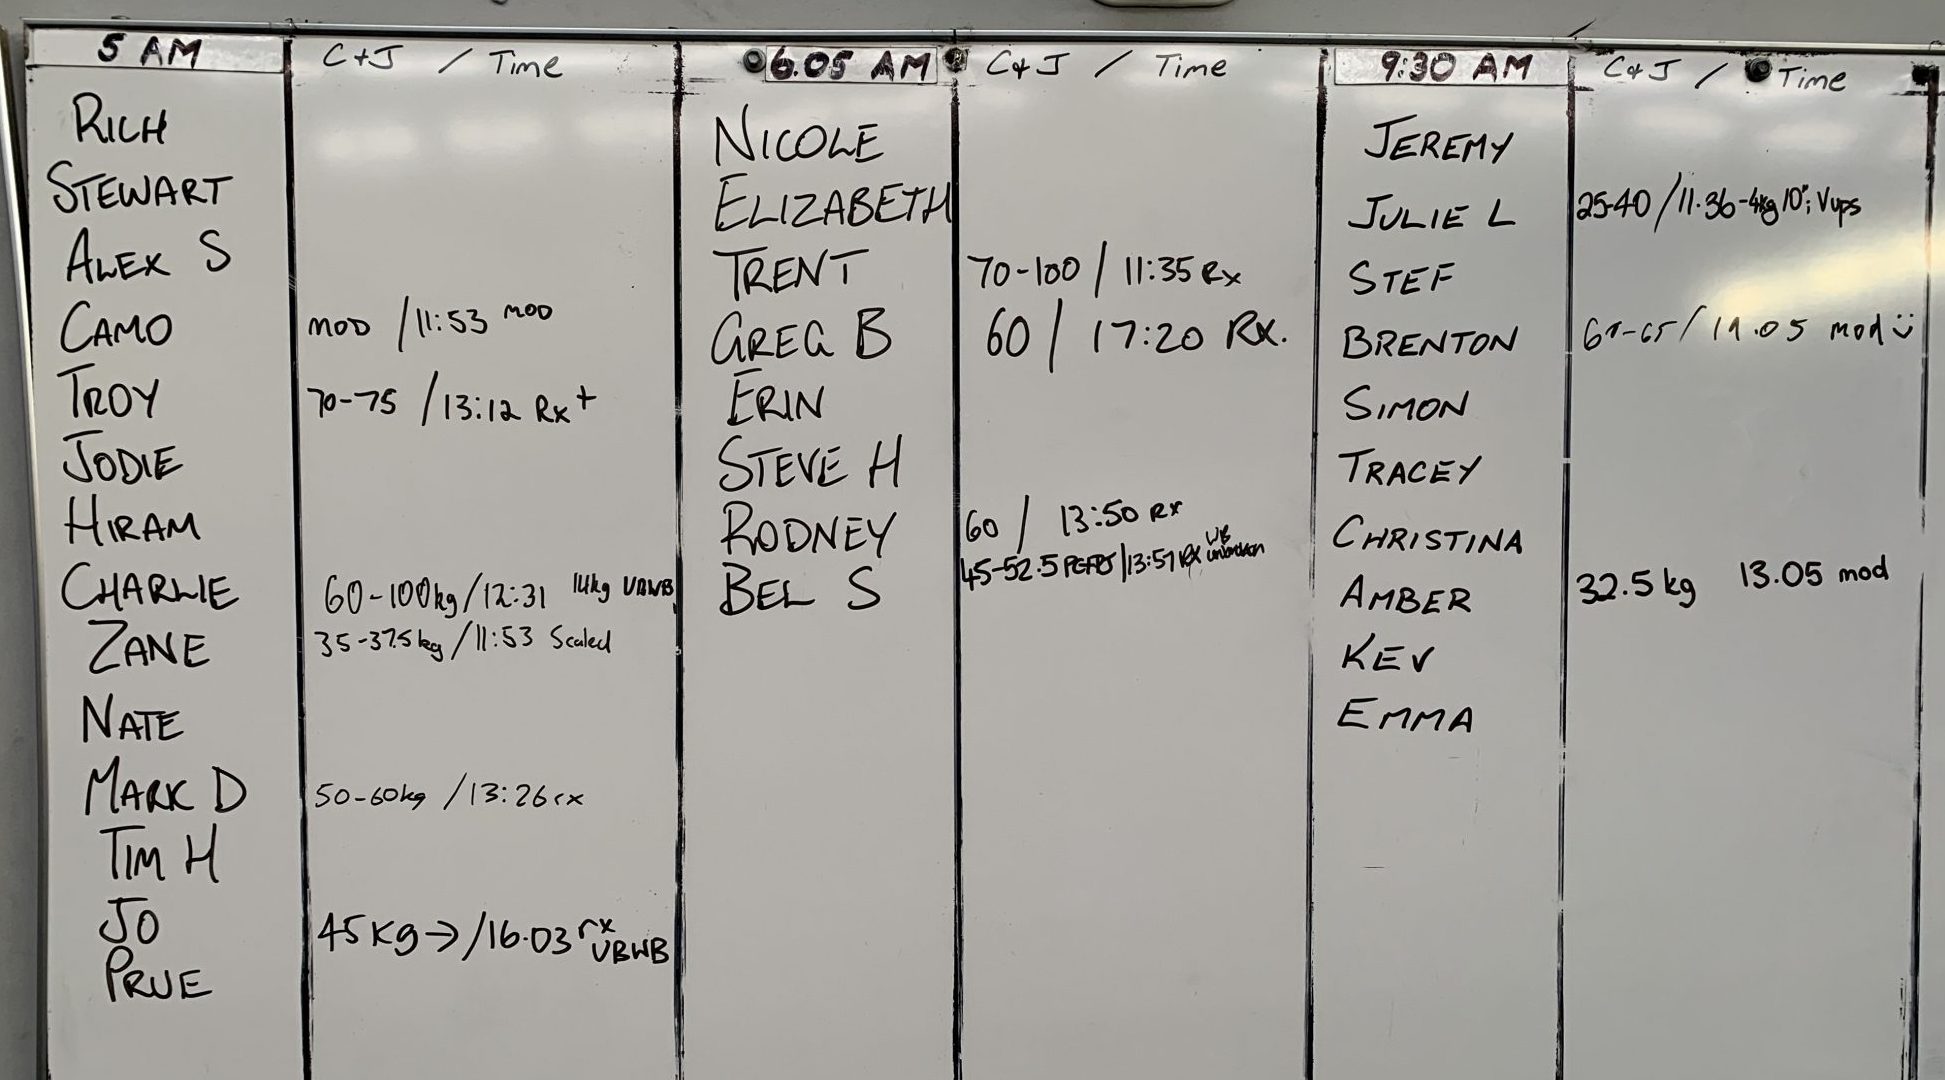 5 AM C+J / Time 6.05 AM C&J / Time 9:30 AM C&J / Time
RICH
STEWART
ALEX S
CAMO MOD / 11:53 MOD
TROY 70-75 / 13:12 Rx+
JODIE
HIRAM
CHARLIE 60-100kg / 12:31 14kg UBWB
ZANE 35-37.5kg / 11:53 Scaled
NATE
MARK D 50-60kg / 13:26 rx
TIM H
JO 45Kg → / 16.03 rx UBWB
PRUE
NICOLE
ELIZABETH
TRENT 70-100 / 11:35 Rx
GREG B 60 / 17:20 Rx.
ERIN
STEVE H
RODNEY 60 / 13:50 Rx
BEL S 45-52.5 / 13:57 Rx WB unbroken
JEREMY
JULIE L 25-40 / 11.36 - 4kg 10"; Vups
STEF
BRENTON mod
SIMON
TRACEY
CHRISTINA
AMBER 32.5 kg 13.05 mod
KEV
EMMA